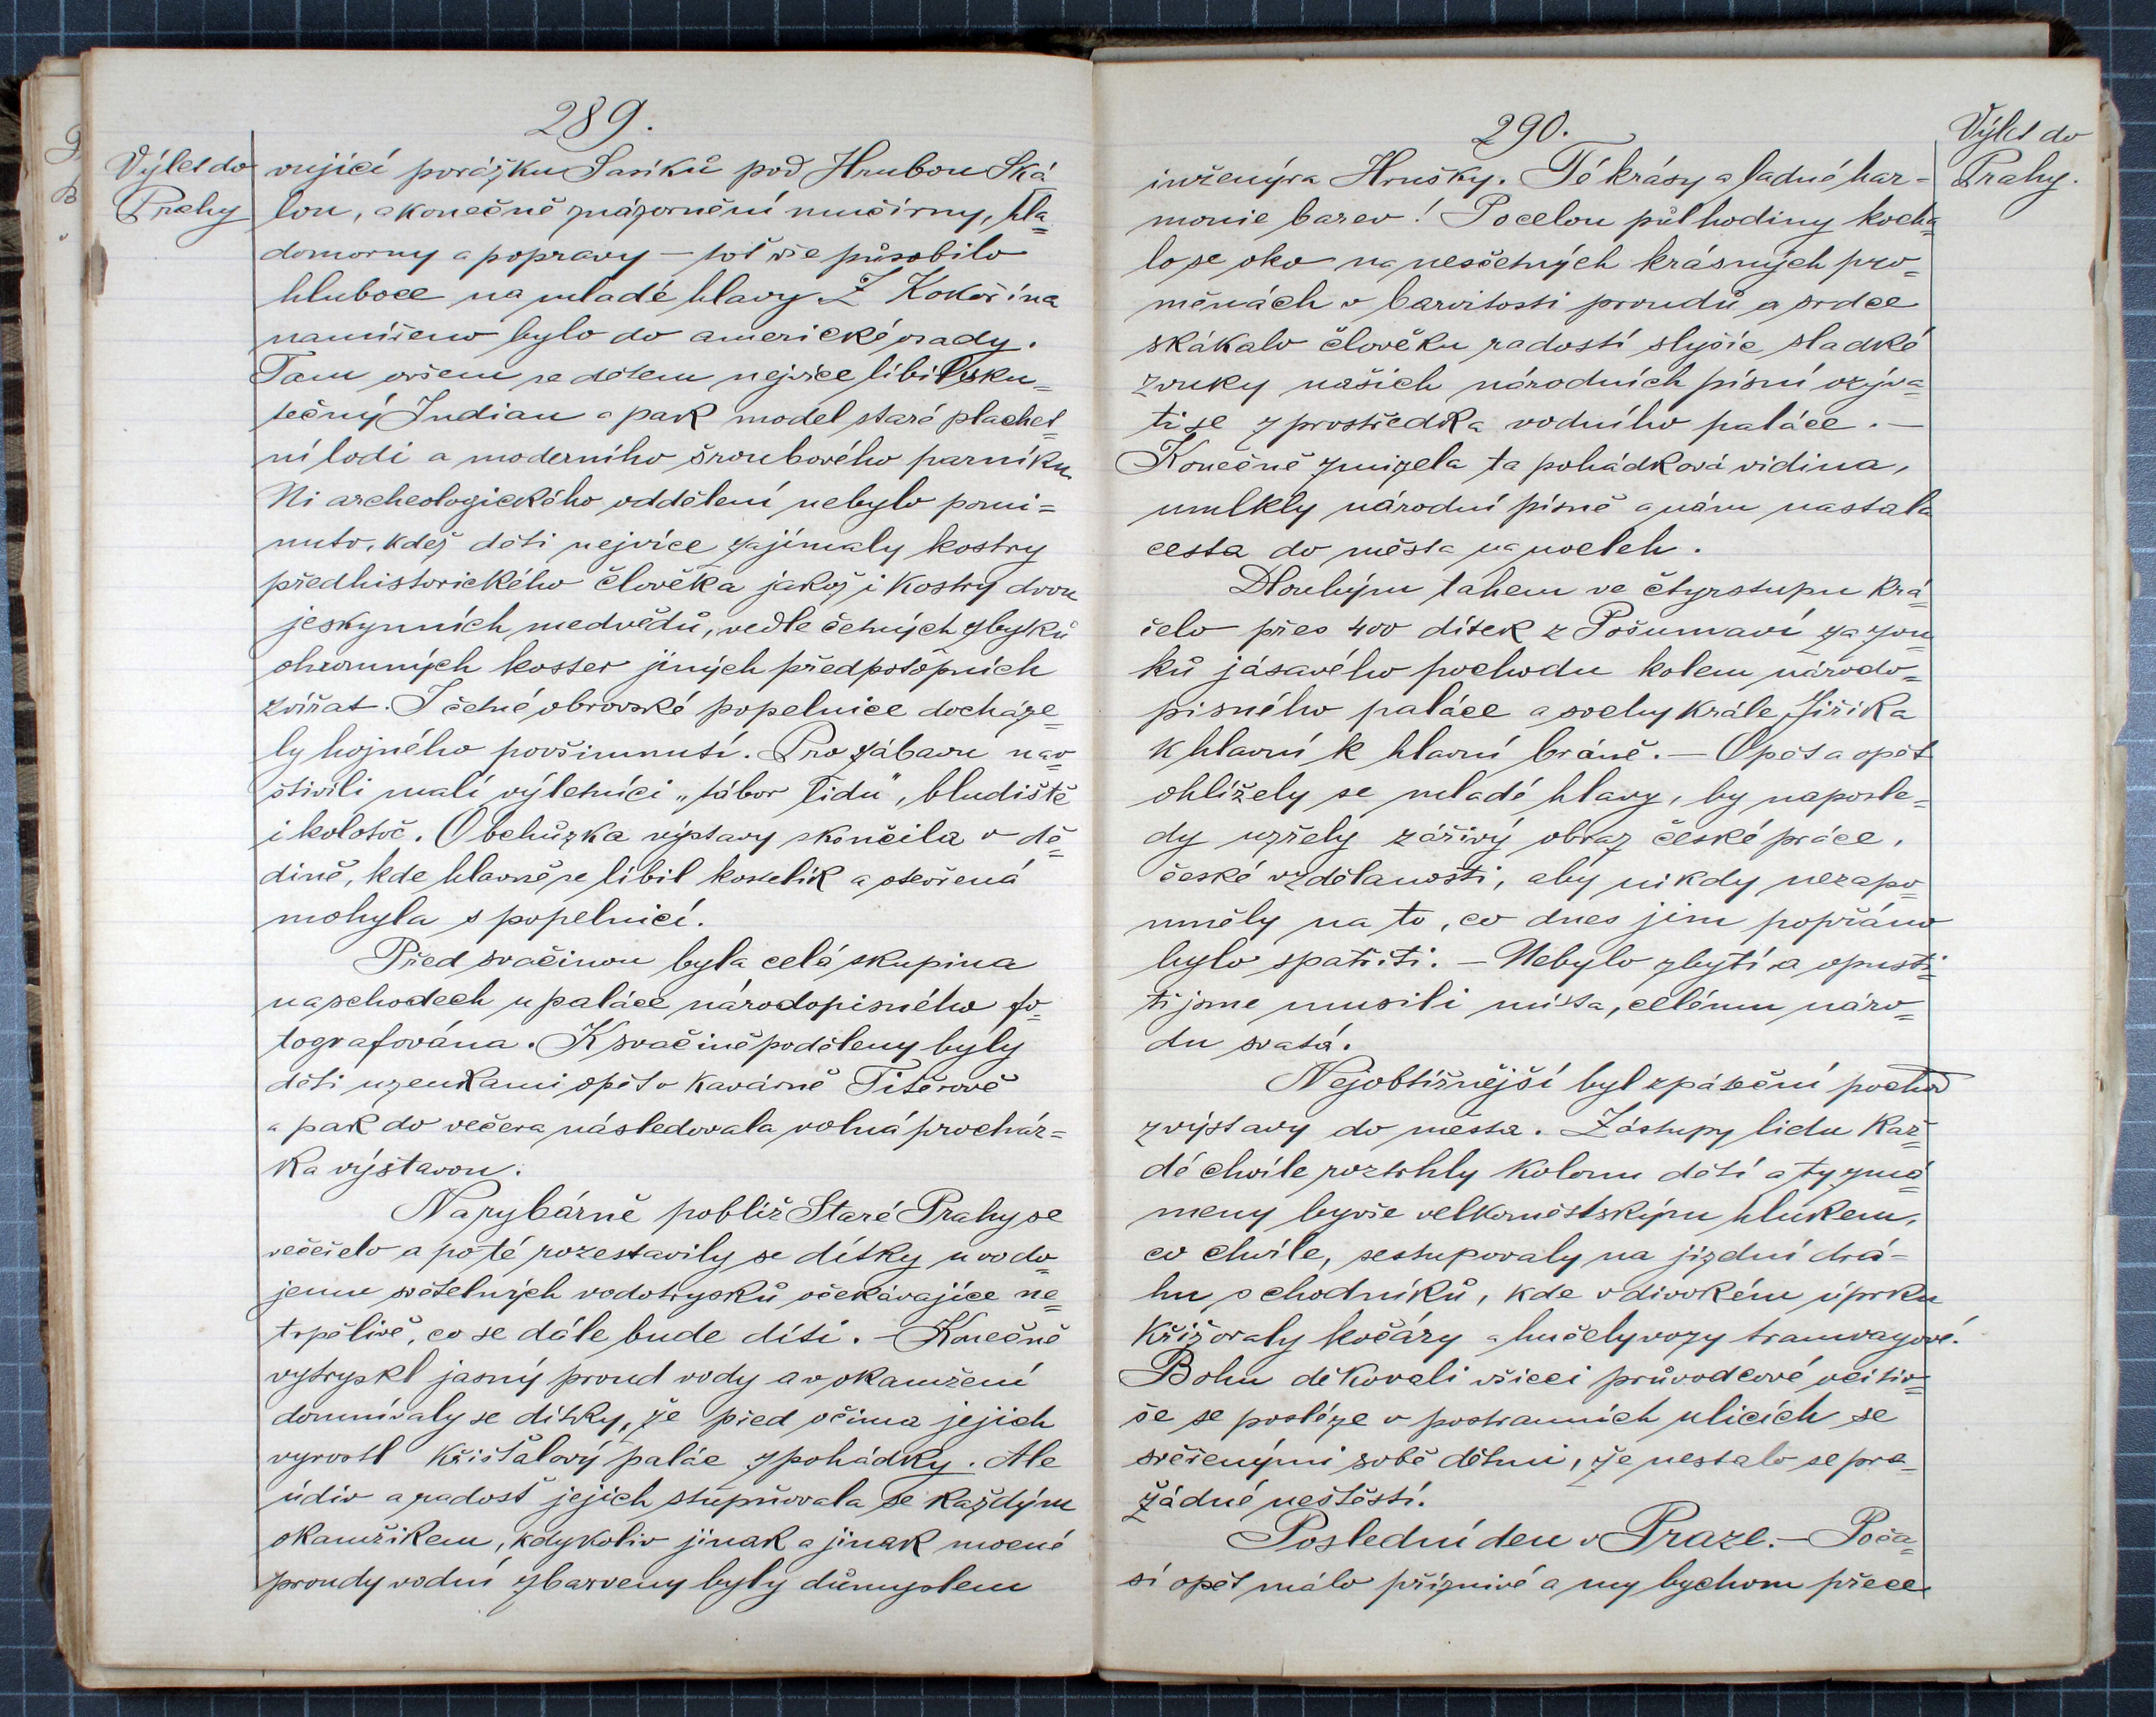 289.
Výlet do
Prahy
vující porážku Sasíků pod Hrubou Ská
lou, a konečně znázornění mučírny, hla=
domorny a popravy – tož vše působilo
hluboce na mladé hlavy. Z Kokořína
namířeno bylo do americké osady.
Tam ovšem se dětem nejvíce líbil sku=
tečný Indian a pak model staré plachet=
ní lodi a moderního šroubového parníku.
Ni archeologického oddělení nebylo pomi=
nuto, kdež děti nejvíce zajímaly kostry
předhistorického člověka jakož i kostry dvou
jeskynních medvědů, vedle četných zbytků
ohromných koster jiných předpotopních
zvířat. I četné obrovské popelnice docháze=
ly hojného povšimnutí. Pro zábavu nav=
štívili malí výletníci „tábor lidu“, bludiště
i kolotoč. Obchůzka výstavy skončila v dě=
dině, kde hlavně se líbil kostelík a otevřená
mohyla s popelnicí.
Před svačinou byla celá skupina
na schodech u paláce národopisného fo=
tografována. K svačině poděleny byly
děti uzenkami opět v kavárně Titěrově
a pak do večera následovala volná procház=
ka výstavou.
Na rybárně poblíž Staré Prahy se
večeřelo a poté rozestavily se dítky u vodo=
jemu světelných vodotrysků očekávajíce ne=
trpělivě, co se dále bude díti. – Konečně
vytryskl jasný proud vody a v okamžení
domnívaly se dítky, že před očima jejich
vyrostl křišťálový palác z pohádky. Ale
údiv a radost jejich stupňovala se každým
okamžikem, kdykoliv jinak a jinak mocné
proudy vodní zbarveny byly důmyslem
290.
Výlet do
Prahy.
inženýra Hrušky. Té krásy a ladné har=
monie barev! Po celou půl hodiny kocha=
lo se oko na nesčetných krásných pro=
měnách v barvitosti proudů a srdce
skákalo člověku radostí slyšíc sladké
zvuky našich národních písní ozýva=
ti se z prostředka vodního paláce. –
Konečně zmizela ta pohádková vidina,
umlkly národní písně a nám nastala
cesta do města na nocleh.
Dlouhým tahem ve čtyrstupu krá=
čelo přes 400 dítek z Pošumaví za zvu
ků jásavého pochodu kolem národo=
pisného paláce a sochy krále Jiříka
k hlavní k hlavní bráně. – Opět a opět
ohlížely se mladé hlavy, by naposle=
dy uzřely zářivý obraz české práce,
české vzdělanosti, aby nikdy nezapo=
mněly na to, co dnes jim popřáno
bylo spatřiti. – Nebylo zbytí a opusti=
ti jsme musili místa, celému náro=
du svatá.
Nejobtížnější byl zpáteční pochod
z výstavy do města. Zástupy lidu kaž=
dé chvíle roztrhly kolonu dětí a ty zma=
meny byvše velkoměstským hlukem,
co chvíle, sestupovaly na jízdní drá=
hu s chodníků, kde v divokém úprku
křižovaly kočáry a hučely vozy tramwayové.
Bohu děkovali všicci průvodcové ocitiv=
še se posléze v postranních ulicích se
svěřenými sobě dětmi, že nestalo se pra=
žádné neštěstí.
Poslední den v Praze. – Poča=
sí opět málo příznivé a my bychom přece